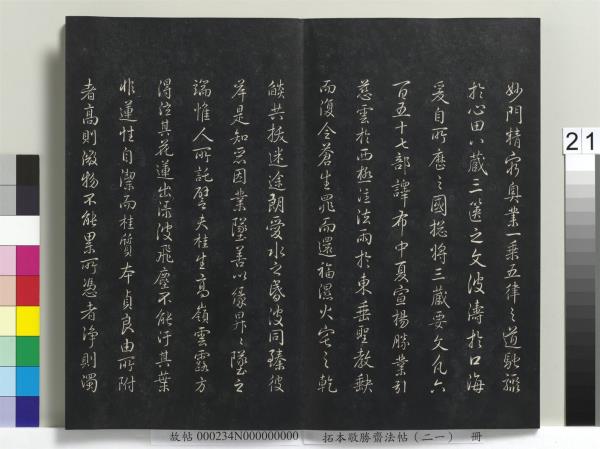 妙門精窮奧業一乘五律之道馳驟
於心田八藏三篋之文波濤於口海
爰自所歷之國總將三藏要文凡六
百五十七部譯布中夏宣揚勝業引
慈雲於西極注法雨於東垂聖教缺
而復全蒼生罪而還福濕火宅之乾
燄共拔迷途朗愛水之昏波同臻彼
岸是知惡因業墜善以緣昇々墜之
端惟人所託譬夫桂生高嶺雲露方
得泫其花蓮出淥波飛塵不能汙其葉
非蓮性自潔而桂質本貞良由所附
者高則微物不能累所憑者淨則濁
故帖 000234N000000000 拓本敬勝齋法帖(二一) 冊
21